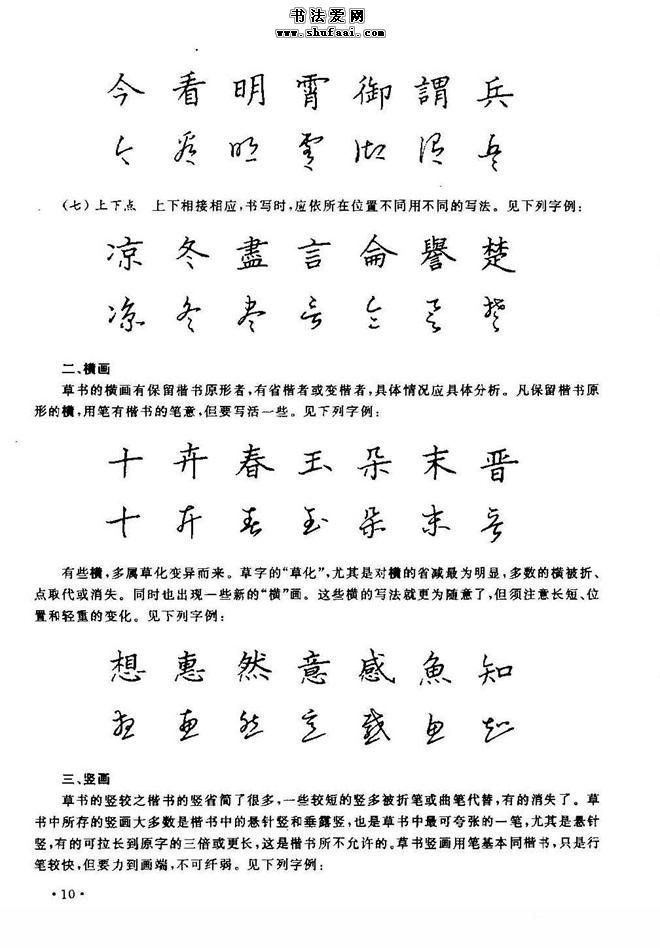 书法爱网
www.shufaai.com
今看明霄御謂兵
今看明霄御謂兵
(七)上下点 上下相接相应,书写时,应依所在位置不同用不同的写法。见下列字例:
凉冬盡言侖譽楚
凉冬盡言侖譽楚
二、横画
草书的横画有保留楷书原形者,有省楷者或变楷者,具体情况应具体分析。凡保留楷书原
形的横,用笔有楷书的笔意,但要写活一些。见下列字例:
十卉春玉朵末晋
十卉春玉朵末晋
有些横,多属草化变异而来。草字的“草化”,尤其是对横的省减最为明显,多数的横被折、
点取代或消失。同时也出现一些新的“横”画。这些横的写法就更为随意了,但须注意长短、位
置和轻重的变化。见下列字例:
想惠然意感魚知
想惠然意感魚知
三、竖画
草书的竖较之楷书的竖省简了很多,一些较短的竖多被折笔或曲笔代替,有的消失了。草
书中所存的竖画大多数是楷书中的悬针竖和垂露竖,也是草书中最可夸张的一笔,尤其是悬针
竖,有的可拉长到原字的三倍或更长,这是楷书所不允许的。草书竖画用笔基本同楷书,只是行
笔较快,但要力到画端,不可纤弱。见下列字例:
·10·